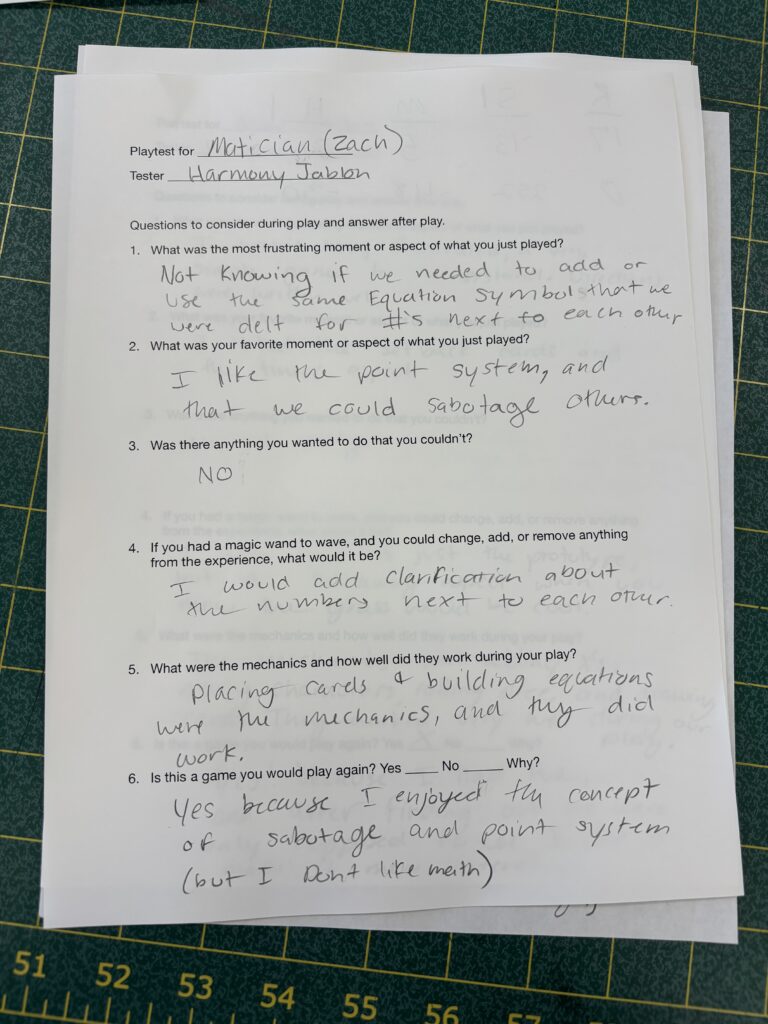 Playtest for Matician (Zach)
Tester Harmony Jablon
Questions to consider during play and answer after play.
1. What was the most frustrating moment or aspect of what you just played?
Not knowing if we needed to add or
use the same Equation symbol that we
were delt for #'s next to each other
2. What was your favorite moment or aspect of what you just played?
I like the point system, and
that we could sabotage others.
3. Was there anything you wanted to do that you couldn't?
NO
4. If you had a magic wand to wave, and you could change, add, or remove anything
from the experience, what would it be?
I would add clarification about
the numbers next to each other.
5. What were the mechanics and how well did they work during your play?
Placing cards & building equations
were the mechanics, and they did
work.
6. Is this a game you would play again? Yes ____ No ____ Why?
Yes because I enjoyed the concept
of sabotage and point system
(but I Dont like math)
51 52 53 54 55 56 57